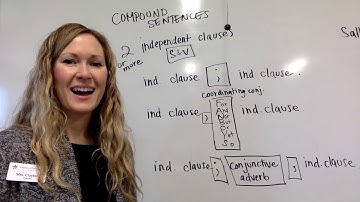 COMPOUND
SENTENCES
2 independent clauses
or more
S&V
ind. clause ; ind. clause.
coordinating conj.
ind. clause , For And Nor But Or Yet So ind. clause.
ind. clause ; conjunctive adverb , ind. clause
Sall